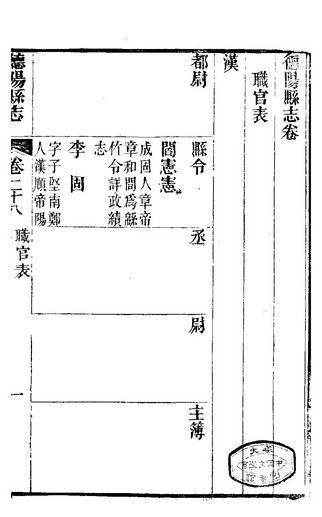 德陽縣志卷
職官表
漢
都尉
縣令
丞
尉
主簿
閻憲憲
成固人章帝
章和間爲緜
竹令詳政績
志
李固
字子堅南鄭
人漢順帝陽
德陽縣志
卷二十八
職官表
一